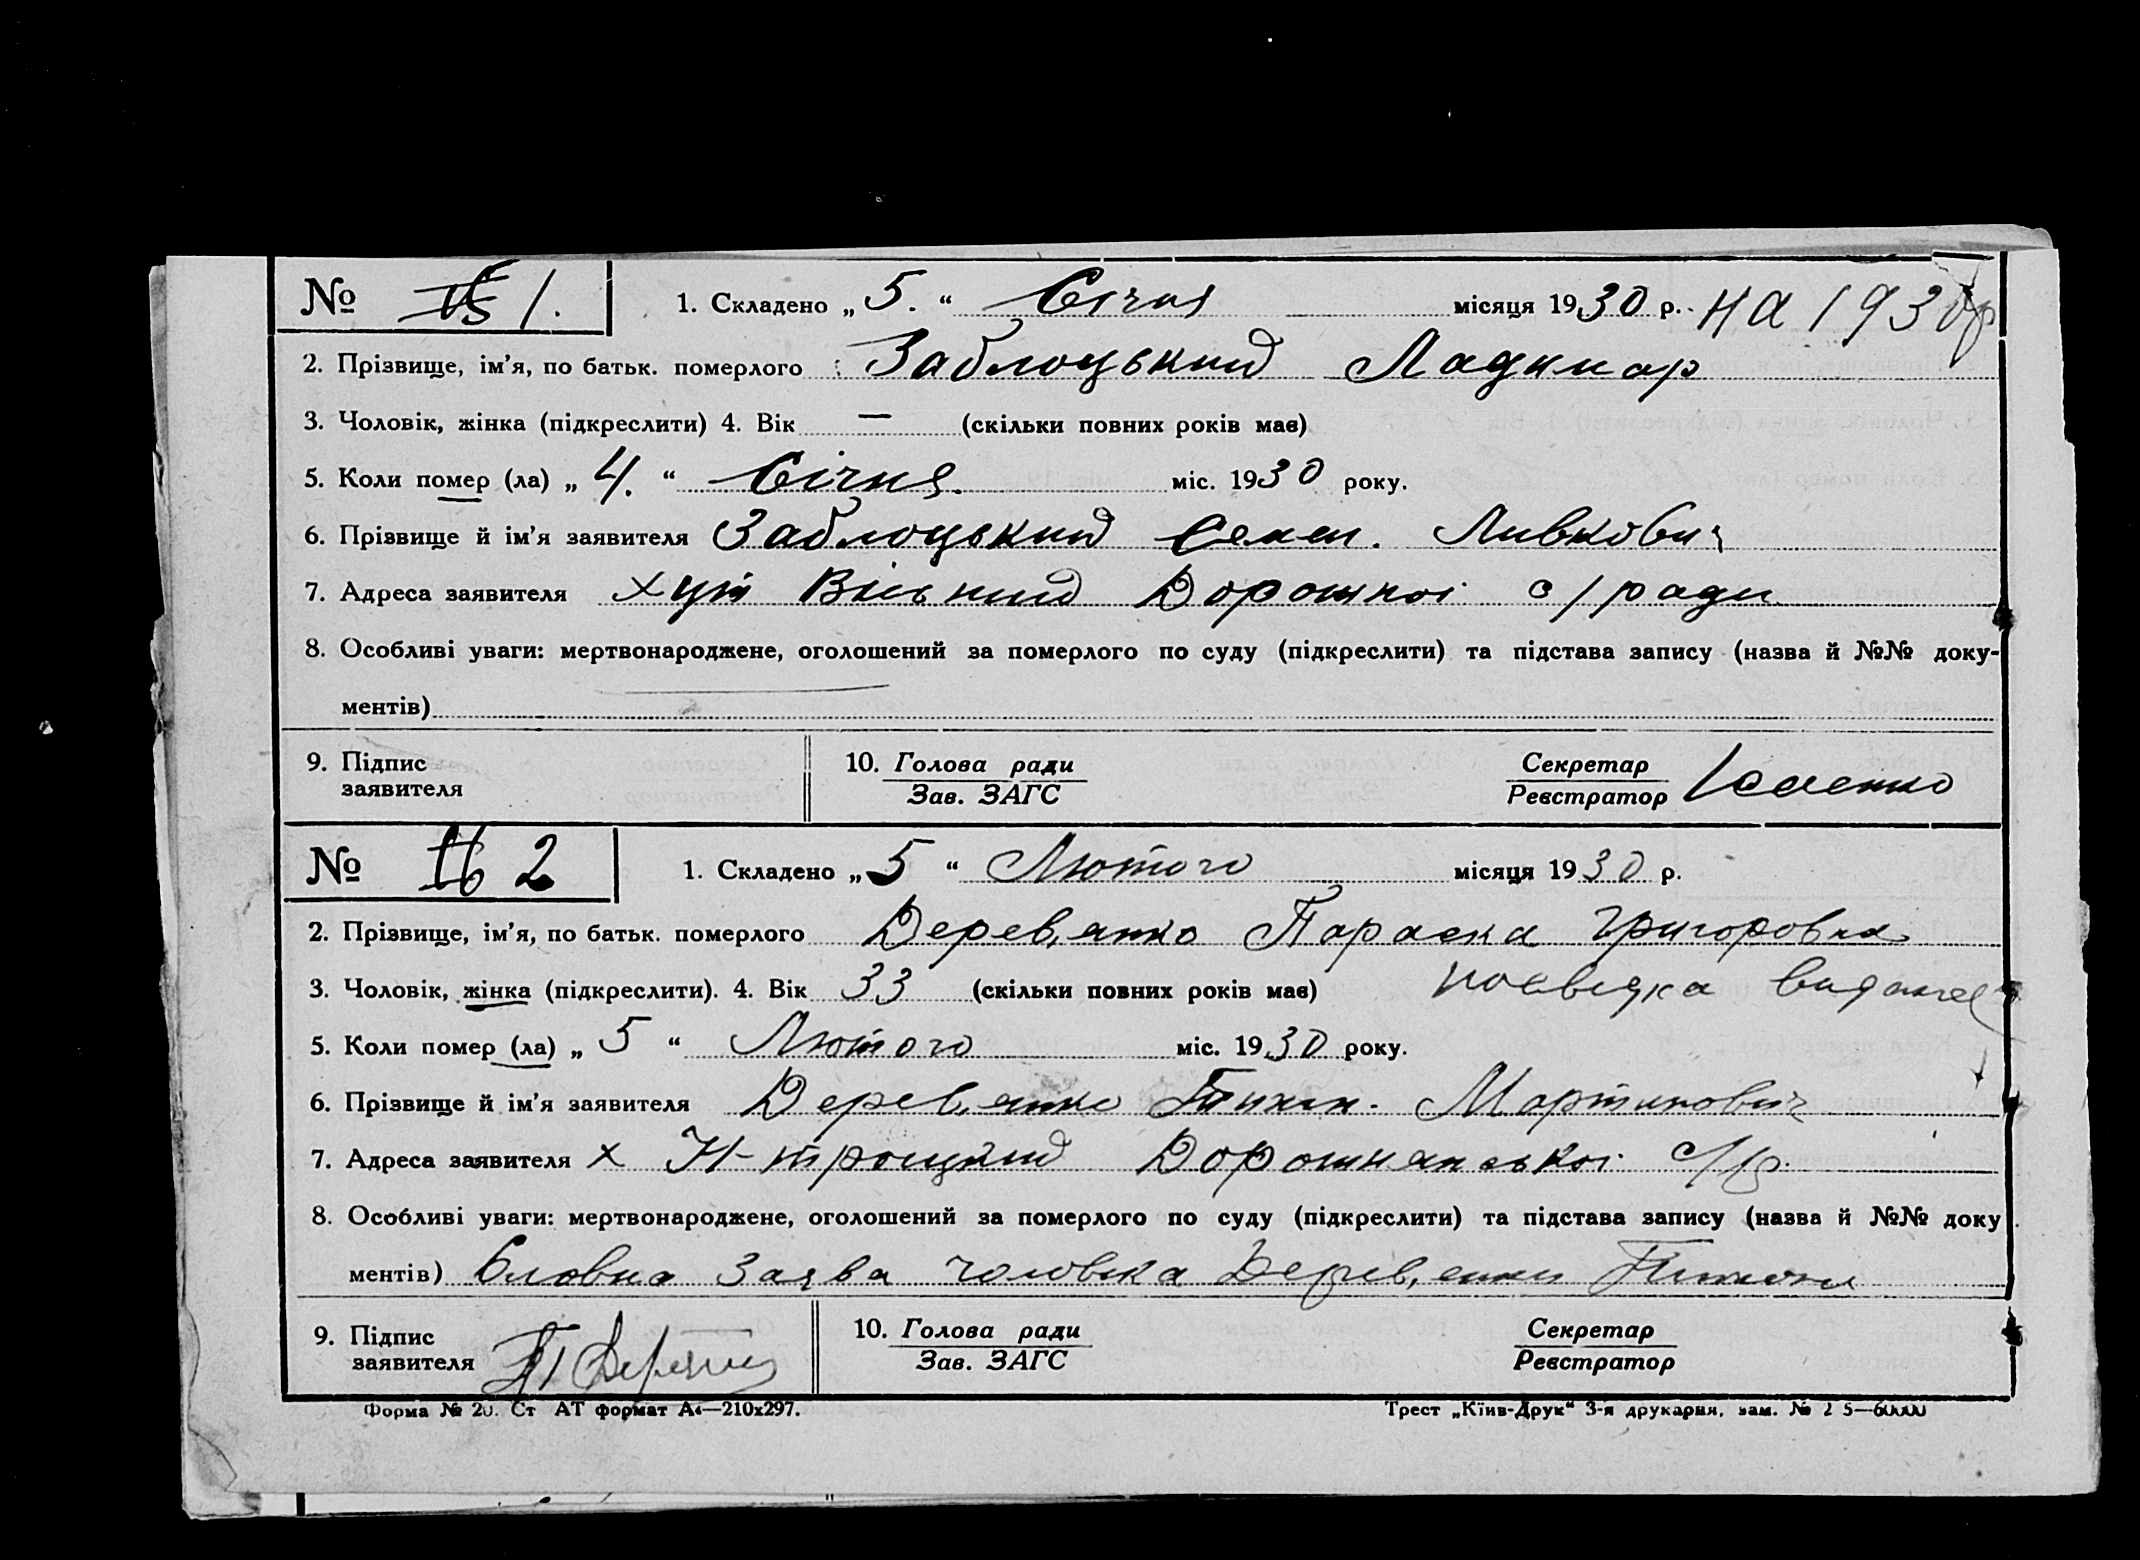 № 1. 1. Складено „ 5. “ Січня місяця 1930 р. на 1930 р
2. Прізвище, ім’я, по батьк. померлого Заблоцький Ладимар
3. Чоловік, жінка (підкреслити) 4. Вік — (скільки повних років має)
5. Коли помер (ла) „ 4. “ Січня міс. 1930 року.
6. Прізвище й ім’я заявителя Заблоцький Семен.
7. Адреса заявителя хут Вільний Дорошної с/ради
8. Особливі уваги: мертвонароджене, оголошений за померлого по суду (підкреслити) та підстава запису (назва й №№ доку-
ментів)
9. Підпис заявителя 10. Голова ради Зав. ЗАГС Секретар Реєстратор
№ 2 1. Складено „ 5 “ Лютого місяця 1930 р.
2. Прізвище, ім’я, по батьк. померлого Дерев,янко Параска Григоровна
3. Чоловік, жінка (підкреслити). 4. Вік 33 (скільки повних років має) посвідка видана
5. Коли помер (ла) „ 5 “ Лютого міс. 1930 року.
6. Прізвище й ім’я заявителя Дерев,янко Тихон. Мартинович
7. Адреса заявителя х Н-троицкий Дорошнянської с/р.
8. Особливі уваги: мертвонароджене, оголошений за померлого по суду (підкреслити) та підстава запису (назва й №№ доку
ментів) Словна Заява чоловіка Дерев,янки Тихона
9. Підпис заявителя 10. Голова ради Зав. ЗАГС Секретар Реєстратор
Форма № 20. Ст АТ формат А4—210х297. Трест „Київ-Друк“ 3-я друкарня, зам. №